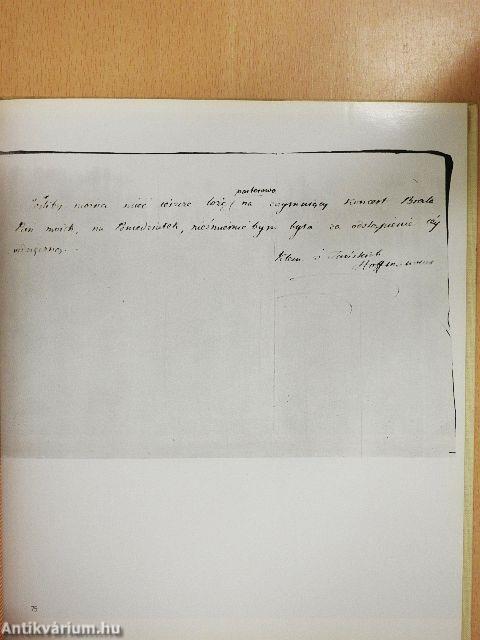 parterowa
Jeśliby można mieć jeszcze lożę na zaymuiący Koncert Brata
Pan moich, na Poniedziałek, niezmiernie bym była za odstąpienie téy
wdzięczna.
Klem. z Tańskich
Hoffmanowa
75
Antikvárium.hu